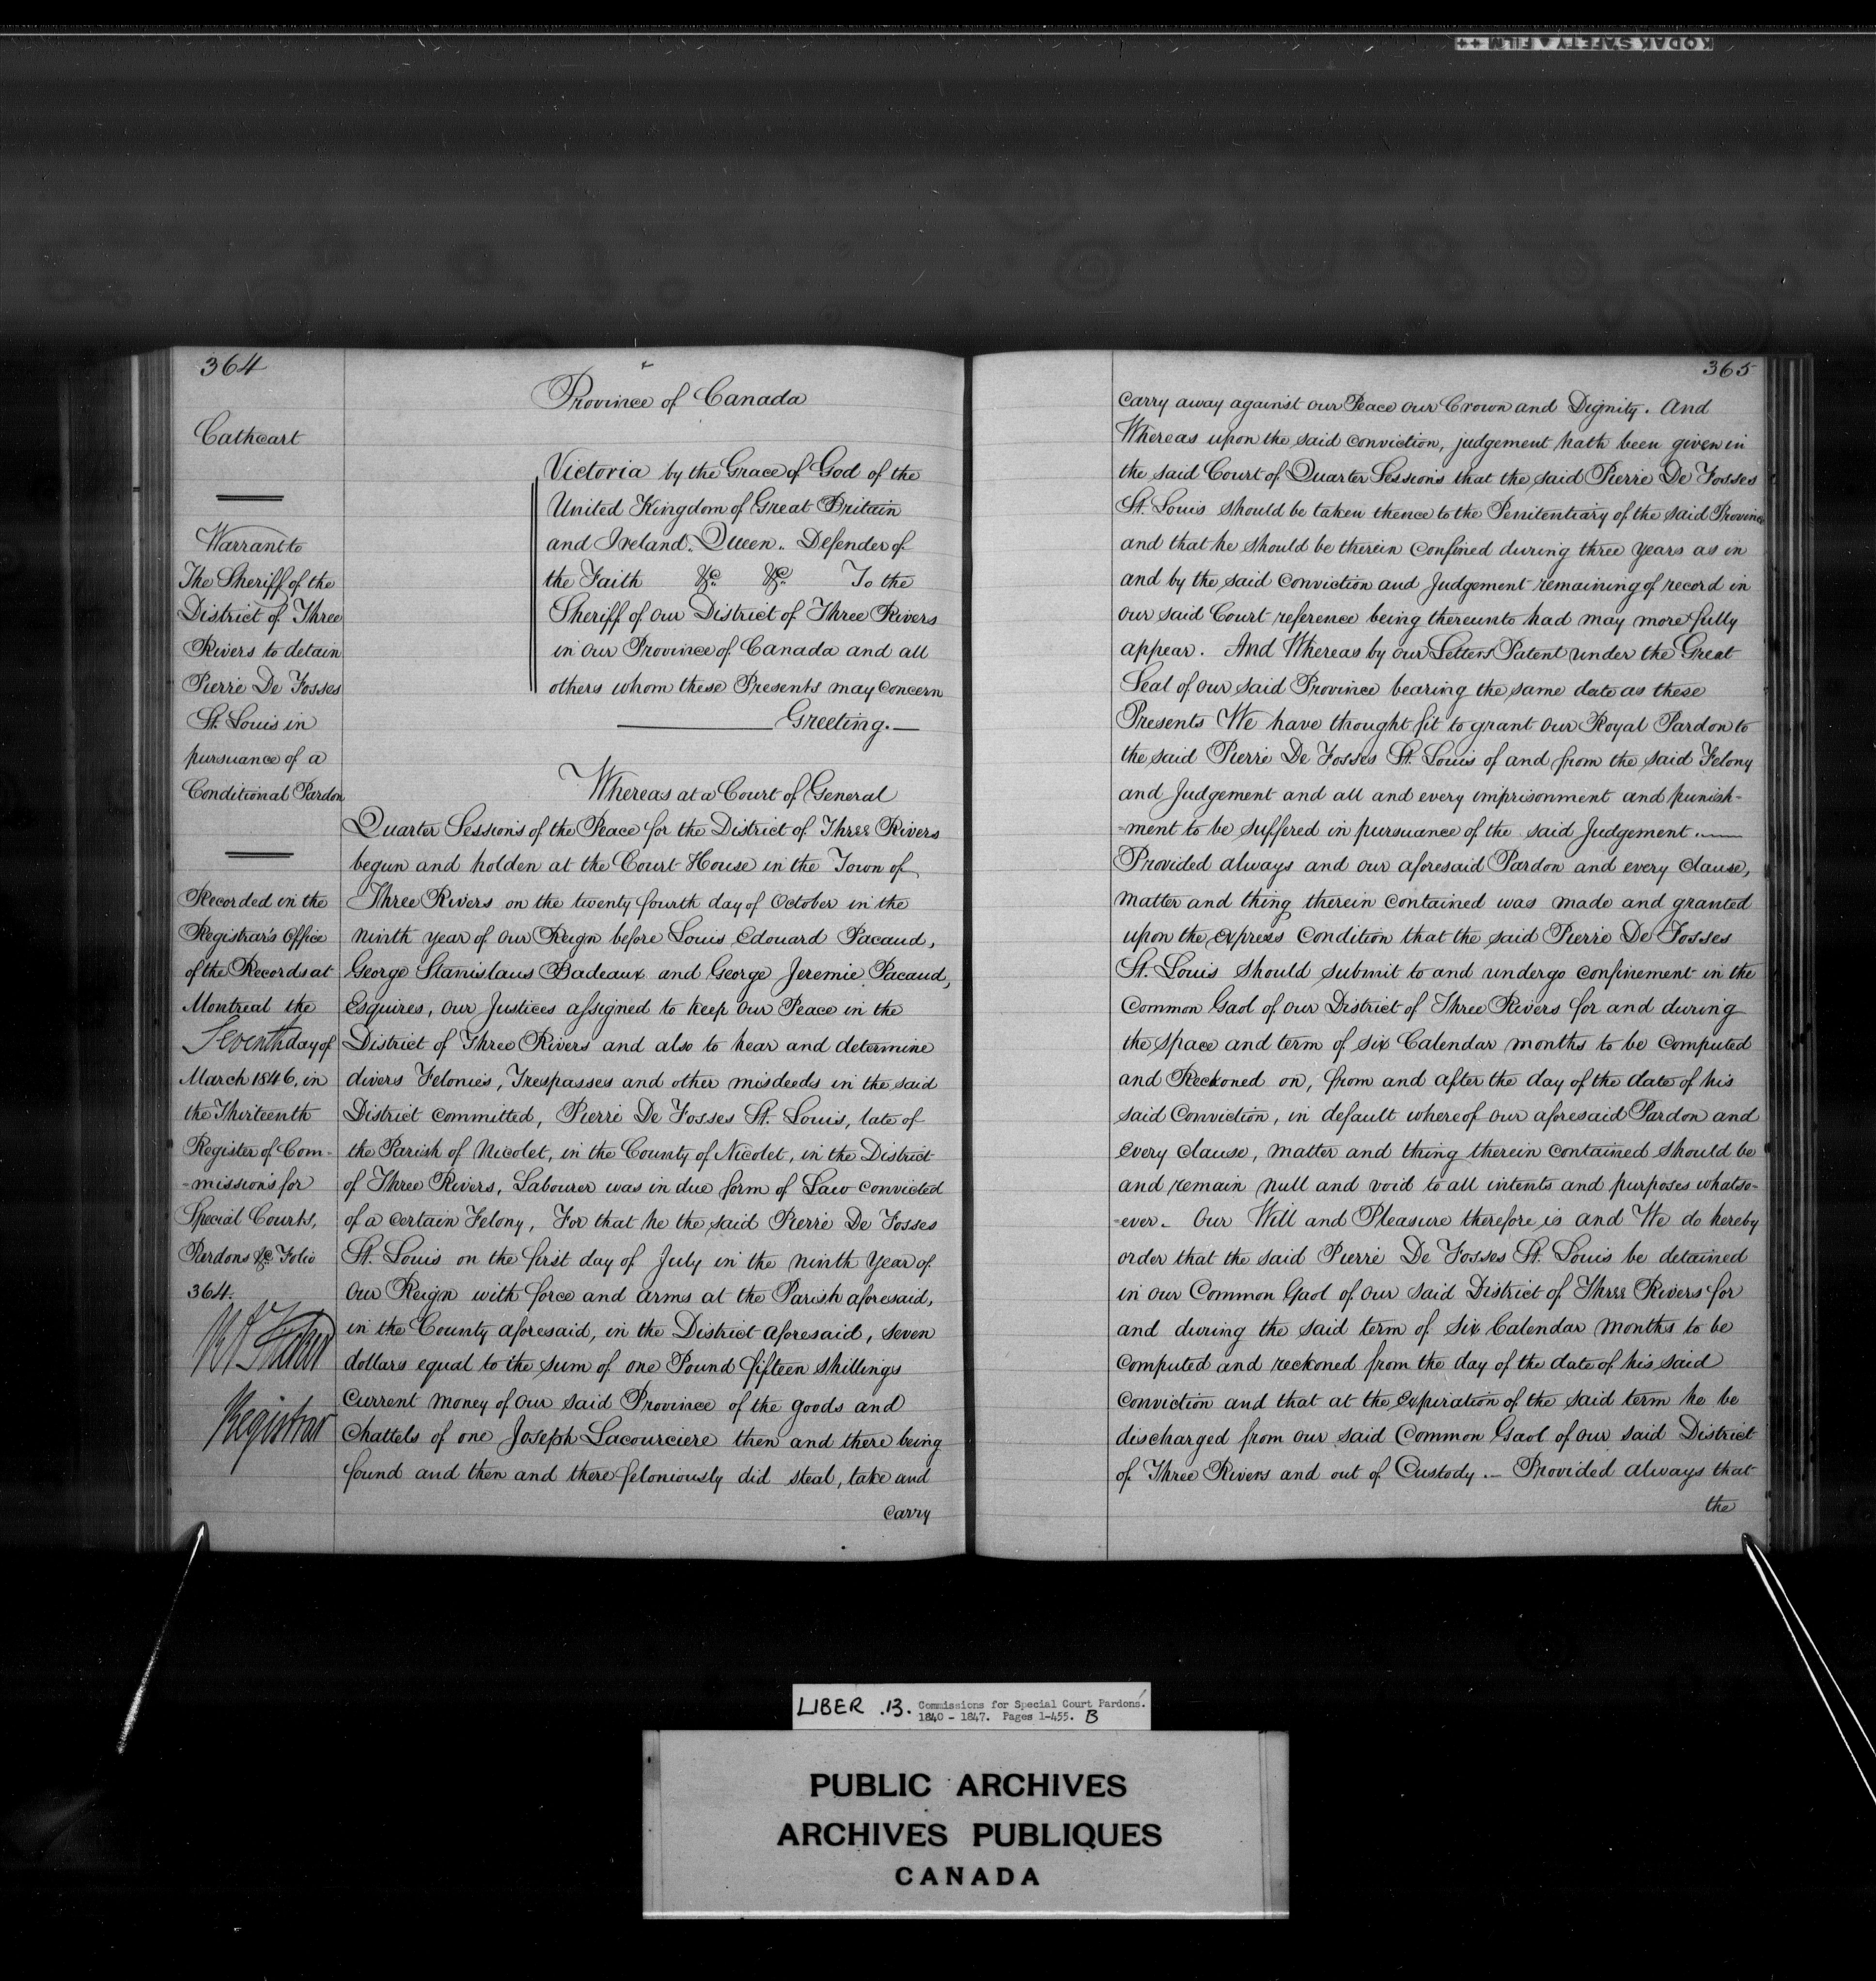 KODAK SAFETY FILM ++
364
Cathcart
Warrant to
The Sheriff of the
District of Three
Rivers to detain
Pierre De Fosses
St. Louis in
pursuance of a
Conditional Pardon
Recorded in the
Registrar's Office
of the Records at
Montreal the
Seventh day of
March 1846, in
the Thirteenth
Register of Com-
-missions for
Special Courts,
Pardons &c. Folio
364.
Registrar
Province of Canada
Victoria by the Grace of God of the
United Kingdom of Great Britain
and Ireland. Queen. Defender of
the Faith &c. &c. To the
Sheriff of our District of Three Rivers
in our Province of Canada and all
others whom these Presents may concern
Greeting.—
Whereas at a Court of General
Quarter Sessions of the Peace for the District of Three Rivers
begun and holden at the Court House in the Town of
Three Rivers on the twenty fourth day of October in the
ninth year of our Reign before Louis Edouard Pacaud,
George Stanislaus Badeaux and George Jeremie Pacaud,
Esquires, our Justices assigned to keep our Peace in the
District of Three Rivers and also to hear and determine
divers Felonies, Trespasses and other misdeeds in the said
District committed, Pierre De Fosses St. Louis, late of
the Parish of Nicolet, in the County of Nicolet, in the District
of Three Rivers, Labourer was in due form of Law convicted
of a certain Felony, For that he the said Pierre De Fosses
St. Louis on the first day of July in the ninth Year of
our Reign with force and arms at the Parish aforesaid,
in the County aforesaid, in the District aforesaid, seven
dollars equal to the sum of one Pound fifteen shillings
Current money of our said Province of the goods and
Chattels of one Joseph Lacourciere then and there being
found and then and there feloniously did steal, take and
carry
365
carry away against our Peace our Crown and Dignity. And
Whereas upon the said conviction, judgement hath been given in
the said Court of Quarter Sessions that the said Pierre De Fosses
St. Louis should be taken thence to the Penitentiary of the said Province
and that he should be therein confined during three years as in
and by the said conviction and Judgement remaining of record in
our said Court reference being thereunto had may more fully
appear. And Whereas by our Letters Patent under the Great
Seal of our said Province bearing the same date as these
Presents We have thought fit to grant our Royal Pardon to
the said Pierre De Fosses St. Louis of and from the said Felony
and Judgement and all and every imprisonment and punish-
-ment to be suffered in pursuance of the said Judgement.—
Provided always and our aforesaid Pardon and every clause,
matter and thing therein contained was made and granted
upon the express condition that the said Pierre De Fosses
St. Louis should submit to and undergo confinement in the
Common Gaol of our District of Three Rivers for and during
the space and term of six Calendar months to be computed
and Reckoned on, from and after the day of the date of his
said Conviction, in default whereof our aforesaid Pardon and
every clause, matter and thing therein contained should be
and remain null and void to all intents and purposes whatso-
-ever. Our Will and Pleasure therefore is and We do hereby
order that the said Pierre De Fosses St. Louis be detained
in our Common Gaol of our said District of Three Rivers for
and during the said term of Six Calendar months to be
computed and reckoned from the day of the date of his said
conviction and that at the expiration of the said term he be
discharged from our said Common Gaol of our said District
of Three Rivers and out of Custody.— Provided always that
the
LIBER .13. Commissions for Special Court Pardons.
1840 - 1847. Pages 1-455. B
PUBLIC ARCHIVES
ARCHIVES PUBLIQUES
CANADA